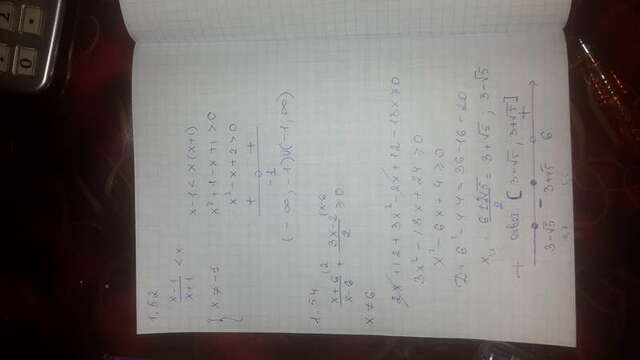 1,52
x-1/x+1 < x
x-1 < x(x+1)
{ x ≠ -1
x²+1-x+1 > 0
x²-x+2 > 0
+ +
-1
(-∞, -1)U(-1; ∞)
1,54
x+6/x-6 + 3x-2/2 ≥ 0
x ≠ 6
2x+12+3x²-2x+12-18x ≥ 0
3x²-18x+24 ≥ 0
x²-6x+4 ≥ 0
D = 6²-4·4 = 36-16 = 20
= 6±2√5/2 = 3+√5, 3-√5
+ - +
3-√5 3+√5 6
[3-√5, 3+√5]